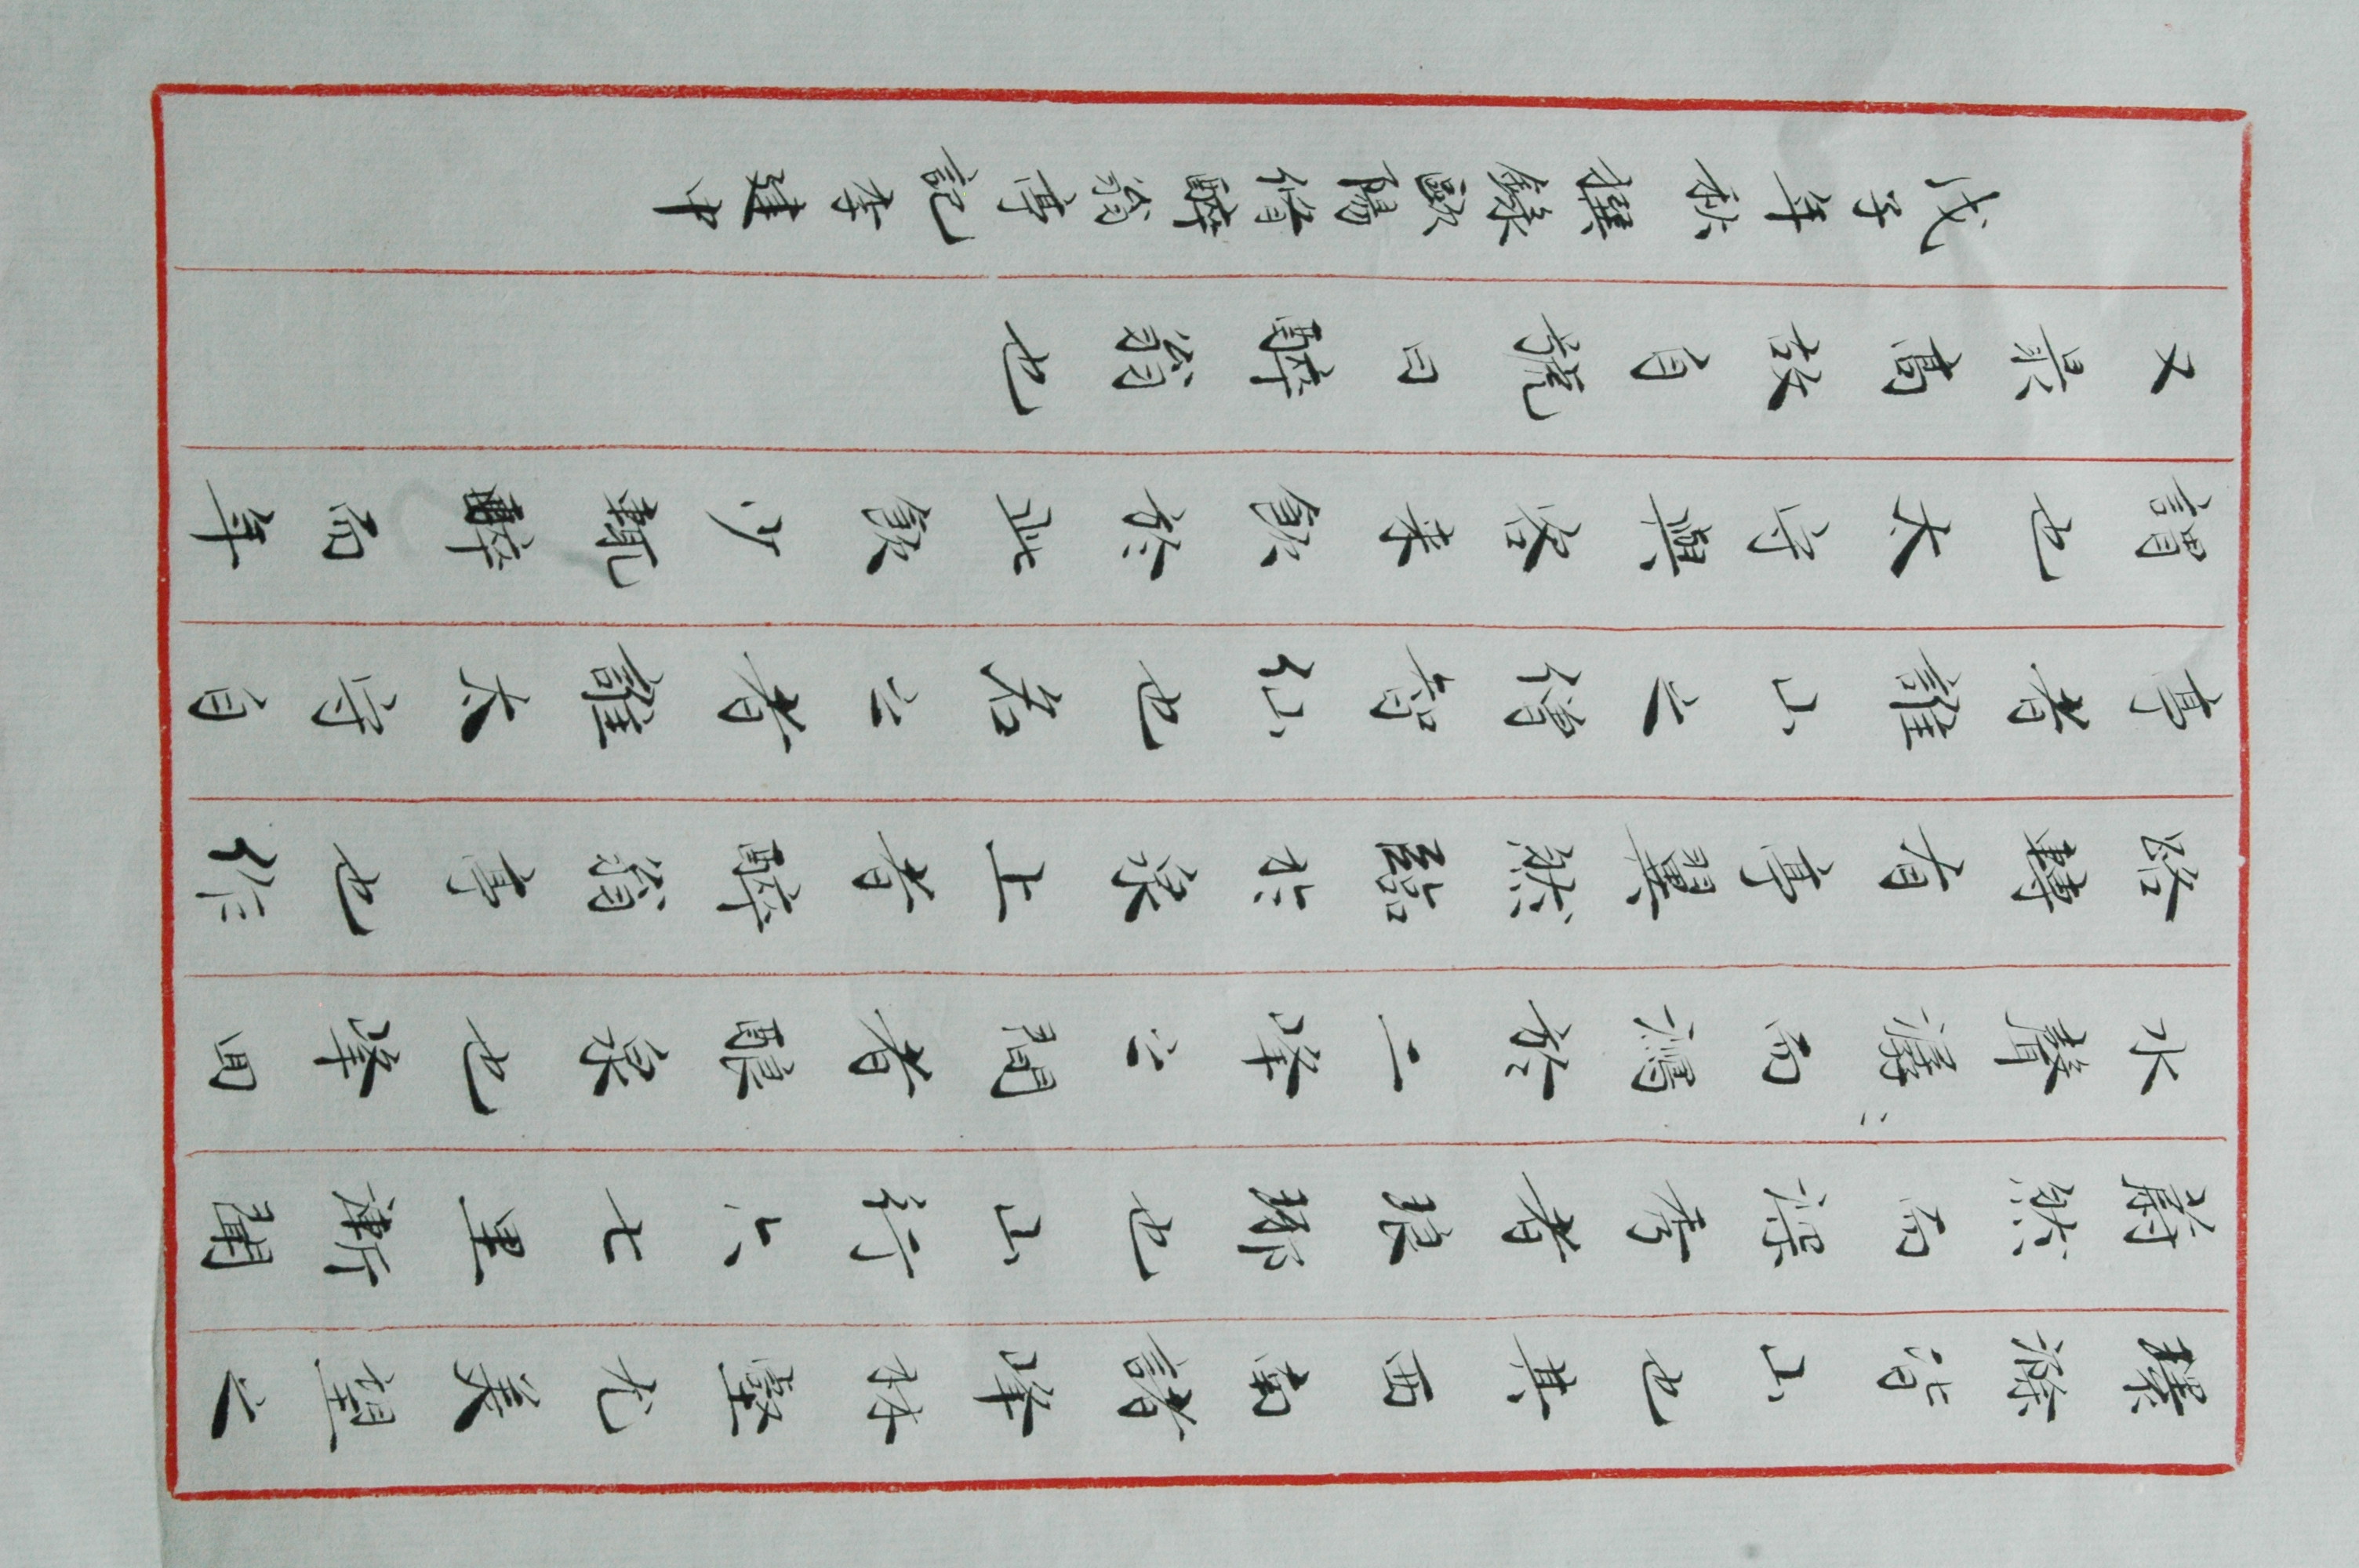 環滁皆山也其西南諸峰林壑尤美望之
蔚然而深秀者琅琊也山行六七里漸聞
水聲潺〻而瀉於二峰之間者釀泉也峰回
路轉有亭翼然臨於泉上者醉翁亭也作
亭者誰山之僧智仙也名之者誰太守自
謂也太守與客来飲於此飲少輒醉而年
又最高故自號曰醉翁也
戊子年秋 撰錄歐陽脩醉翁亭記 李建中